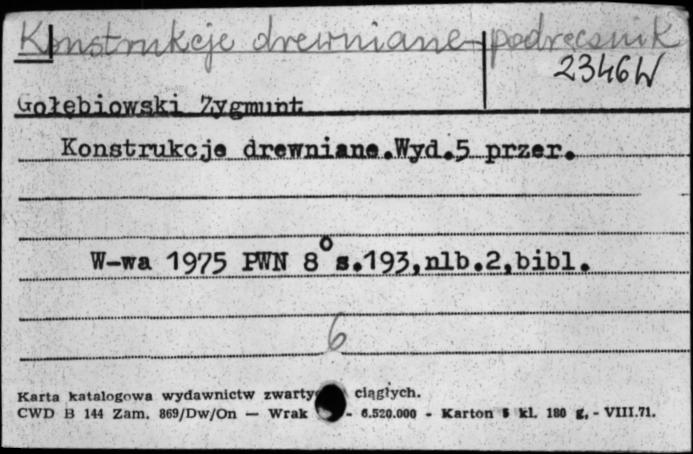 Konstrukcje drewniane-podręcznik
2346W
Gołębiowski Zygmunt
Konstrukcje drewniane.Wyd.5 przer.
W-wa 1975 PWN 8° s.193,nlb.2,bibl.
6
Karta katalogowa wydawnictw ciągłych.
CWD B 144 Zam. 869/Dw/On — Wrak - 6.520.000 - Karton kl. 180 g, - VIII.71.